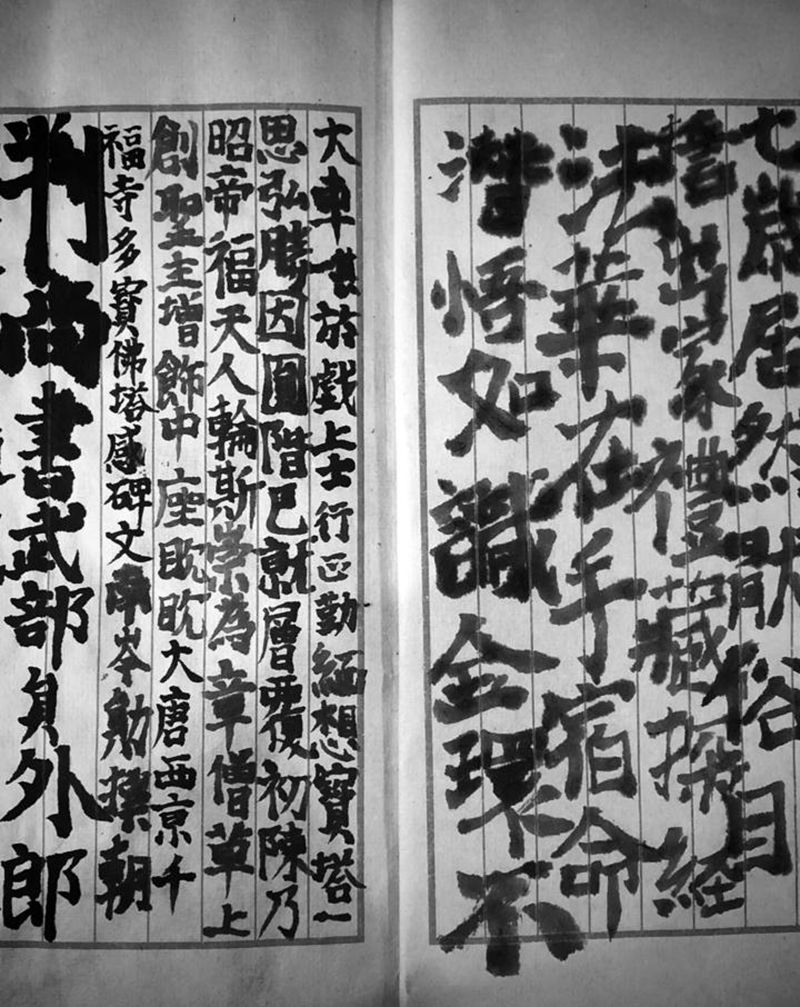 七歲居然猒俗目
誓出家禮藏探経
法華在手宿命
潛悟如識金環不
大車於戲上士行正勤緬想寶塔一
思弘勝因圓階已就層覆初陳乃
昭帝福天人輪斯崇為章僧草上
創聖主增飾中座眈眈大唐西京千
福寺多寶佛塔感碑文南岑勛撰朝
判尚書武部員外郎